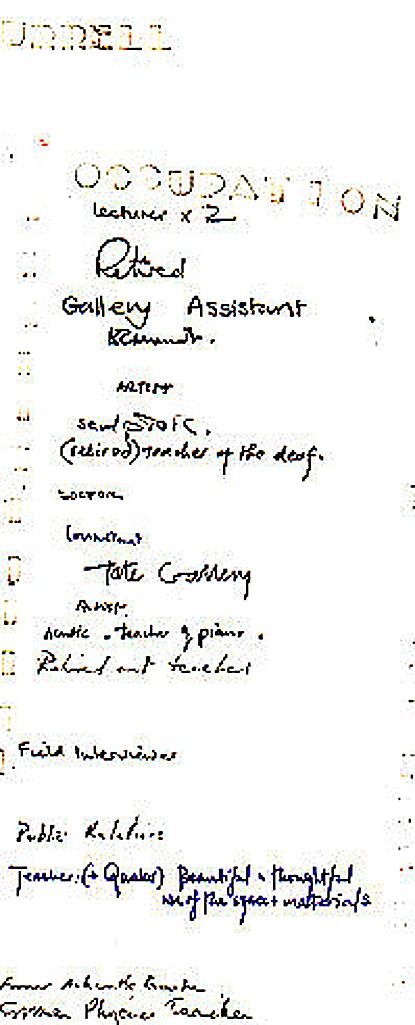 URRELL
OCCUPATION
Lecturer x 2
Retired
Gallery Assistant
ARTIST
(retired) teacher of the deaf.
DOCTOR
Consultant
Tate Gallery
Artist
teacher of piano.
Retired art teacher
Field Interviewer
Public Relations
Teacher (+ Quaker) Beautiful + thoughtful
use of the space + materials
Former
Physics Teacher